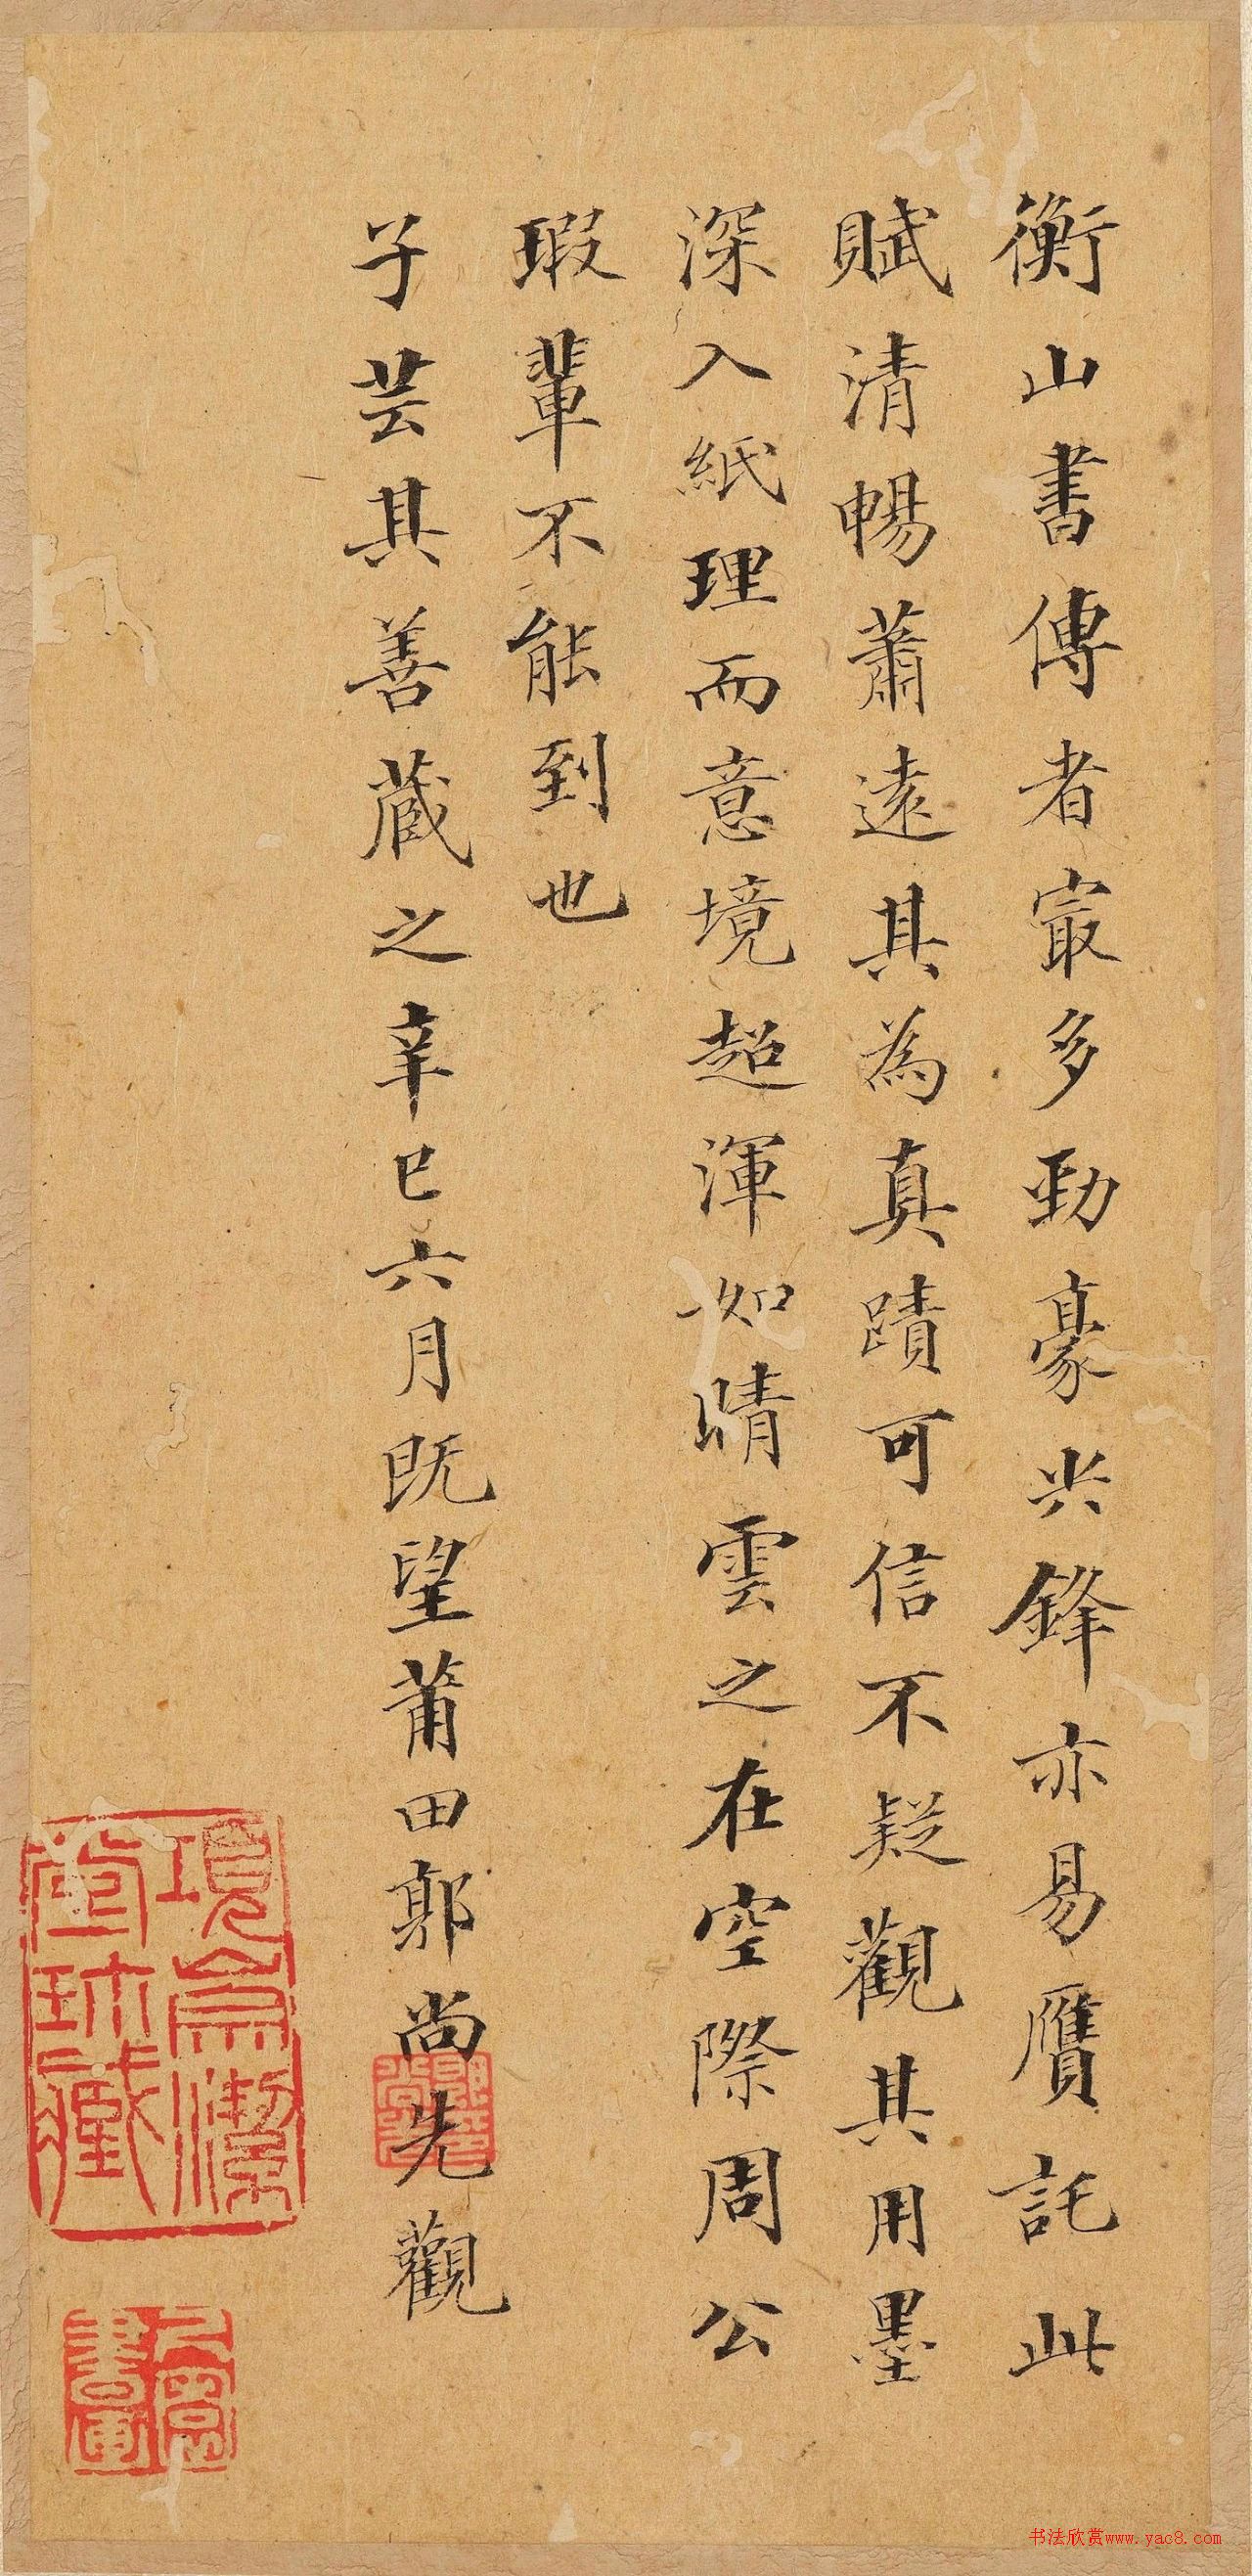 衡山書傳者㝡多勁豪尖鋒亦易贋託此
賦清暢蕭遠其為真蹟可信不疑觀其用墨
深入紙理而意境超渾如晴雲之在空際周公
瑕輩不能到也
子芸其善藏之辛巳六月既望莆田郭尚先觀
书法欣赏www.yac8.com